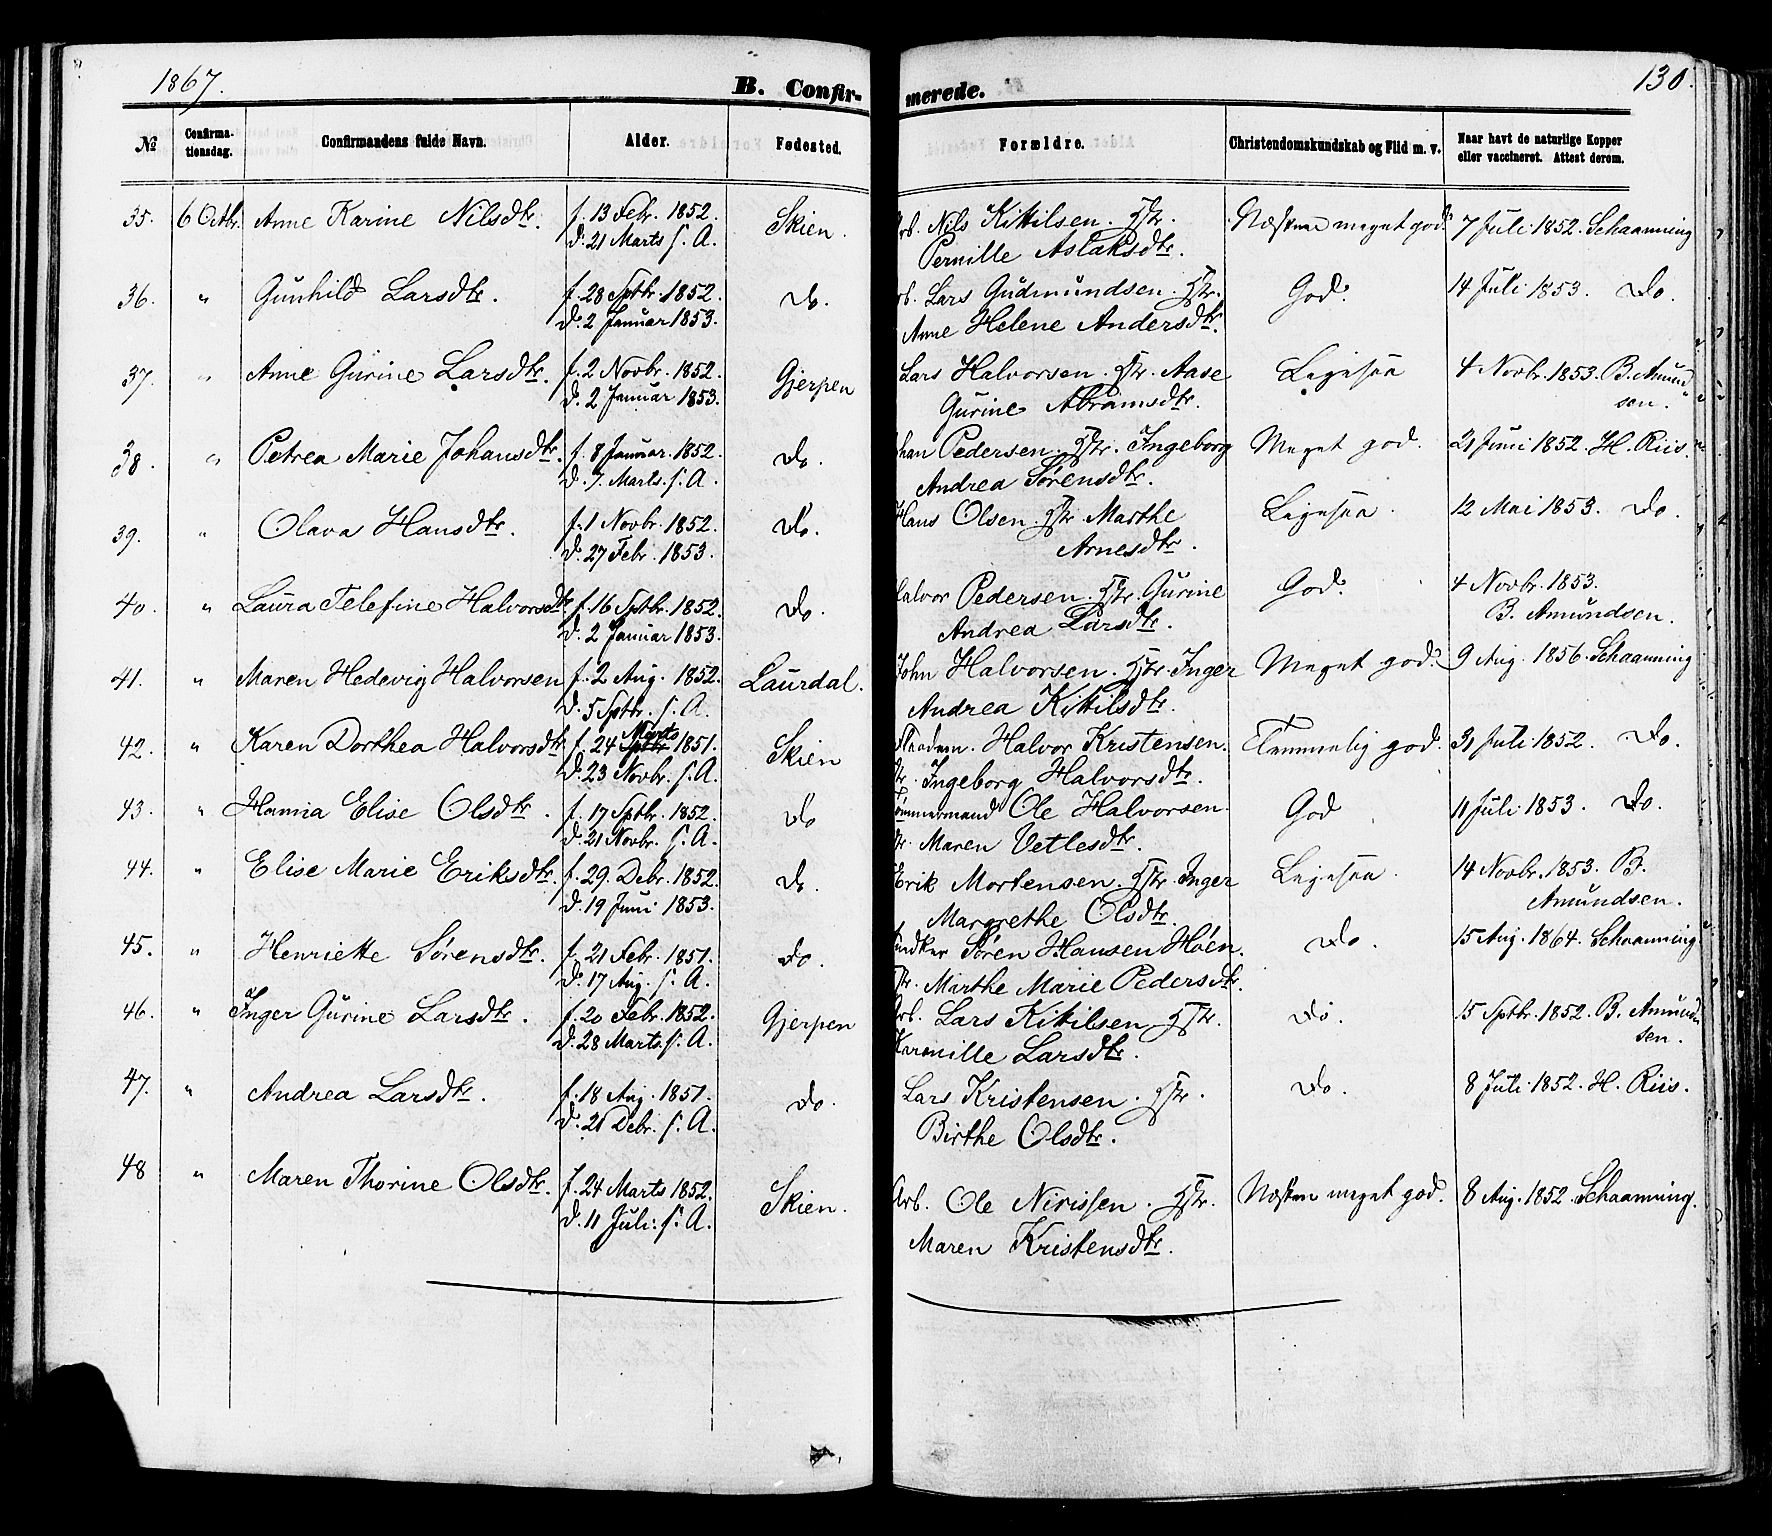 1867.
B. Confir-
merede.
130.
№ Confirma-tionsdag. Confirmandens fulde Navn. Alder. Fødested. Forældre. Christendomskundskab og Flid m. v. Naar havt de naturlige Kopper eller vaccineret. Attest derom.
35. 6 Octbr. Anne Karine Nilsdtr. f. 13 Febr. 1852. Skien. Arb. Nils Kittilsen. Hstr. Næsten meget god. 7 Juli 1852. Schaanning
d. 21 Marts s. A. Pernille Aslaksdtr.
36. " Gunhild Larsdtr. f. 28 Sptbr. 1852. Do. Arb. Lars Gudmundsen. Hstr. God. 14 Juli 1853. Do.
d. 2 Januar 1853. Anne Helene Andersdtr.
37. " Anne Gurine Larsdtr. f. 2 Novbr. 1852. Gjerpen Lars Halvorsen. Hstr. Aase Ligesaa 4 Novbr. 1853. B. Amund
d. 2 Januar 1853. Gurine Abramsdtr. sen.
38. " Petrea Marie Johansdtr. f. 8 Januar 1852. Do. Johan Pedersen Hstr. Ingeborg Meget god. 21 Juni 1852. H. Riis.
d. 7. Marts. s. A. Andrea Sørensdtr.
39. " Olava Hansdtr. f. 1 Novbr. 1852. Do. Hans Olsen. Hstr Marthe Ligesaa. 12 Mai 1853. Do.
d. 27 Febr. 1853. Arnesdtr.
40. " Laura Telefine Halvorsdtr f. 16 Sptbr. 1852. Do. Halvor Pedersen. Hstr. Gurine God. 4 Novbr. 1853.
d. 2 Januar 1853. Andrea Larsdtr. B. Amundsen.
41. " Maren Hedevig Halvorsen f. 2 Aug. 1852. Laurdal. John Halvorsen. Hstr. Inger Meget god. 9 Aug. 1856. Schaanning
d. 5 Sptbr. s. A. Andrea Kittilsdtr.
Marts
42. " Karen Dorthea Halvorsdtr f. 24 Sptbr 1851. Skien Halvor Kristensen. Temmelig god. 31 Juli 1852. Do.
d. 23 Novbr. s. A. Ingeborg Halvorsdtr.
43. " Hanna Elise Olsdtr. f. 17 Sptbr. 1852. Do Tømmermand Ole Halvorsen God. 11 Juli 1853. Do.
d. 21 Novbr. s. A. Maren Vetlesdtr.
44. " Elise Marie Eriksdtr. f. 29. Debr. 1852. Do. Erik Mortensen. Hstr. Inger Ligesaa. 14 Novbr. 1853. B.
d. 19 Juni 1853. Margrethe Olsdtr. Amundsen.
45. " Henriette Sørensdtr. f. 21 Febr. 1851. Do. Søren Hansen Høen. Do. 15 Aug. 1864. Schaanning
d. 17 Aug. s. A. Hstr. Marthe Marie Pedersdtr.
46. " Inger Gurine Larsdtr. f. 20 Febr. 1852. Gjerpen Arb. Lars Kittilsen Hstr. Do. 15 Sptbr. 1852. B. Amund
d. 28 Marts. s. A. Karenille Larsdtr. sen.
47. " Andrea Larsdtr. f. 18 Aug. 1851. Do. Lars Kristensen. Hstr. Do. 8 Juli 1852. H. Riis.
d. 21 Debr. s. A. Birthe Olsdtr.
48 " Maren Thorine Olsdtr. f. 24 Marts 1852. Skien. Arb. Ole Nirissen. Hstr. Næsten meget god. 8 Aug. 1852. Schaanning.
d. 11 Juli. s. A. Maren Kristensdtr.